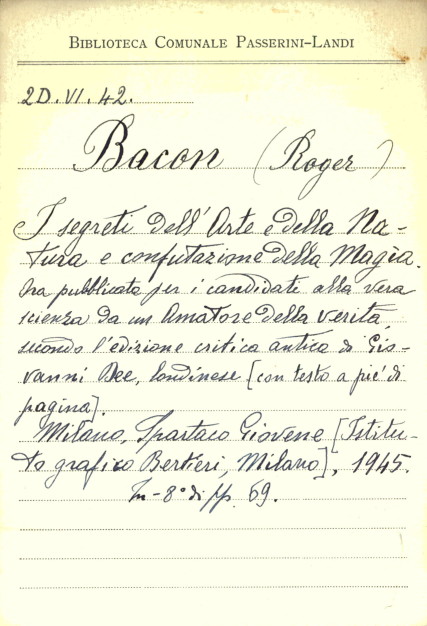 BIBLIOTECA COMUNALE PASSERINI-LANDI
2D.VI.42.
Bacon (Roger)
I segreti dell'Arte e della Na-
tura e confutazione della Magia.
ora pubblicata per i candidati alla vera
scienza da un Amatore della verità,
secondo l'edizione critica antica di Gio-
vanni Dee, londinese [con testo a piè di
pagina].
Milano, Spartaco Giovene [Istitu-
to grafico Bertieri, Milano], 1945.
In-8° di pp. 69.